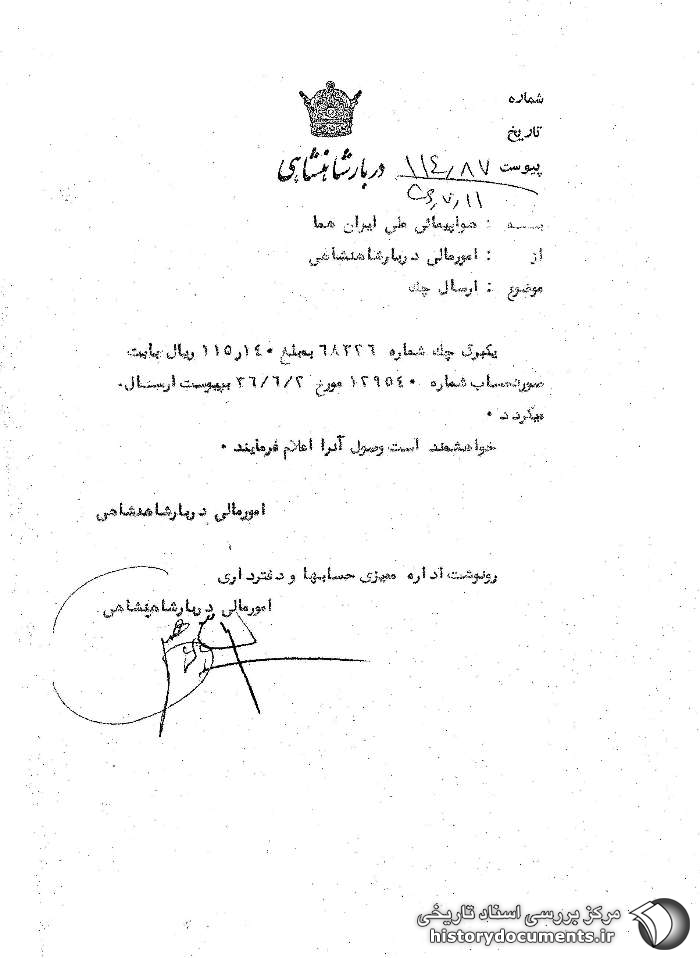 شماره
تاریخ
پیوست ۱۱٤٫۸۷
دربار شاهنشاهی
بسه : هواپیمائی ملی ایران هما
از : امورمالی دربارشاهنشاهی
موضوع : ارسال چك
یکبرگ چك شماره ٦۸۳۲٦ بمبلغ ۱۱٥٫۱٤۰ ریال بابت
صورتحساب شماره ۱۲۹٥٤۰ مورخ ۳٦/٦/۲ بپیوست ارسال
میگردد .
خواهشمند است وصول آنرا اعلام فرمایند .
امورمالی دربارشاهنشاهی
رونوشت اداره ممیزی حسابها و دفترداری
امورمالی دربارشاهنشاهی
مرکز بررسی اسناد تاریخی
historydocuments.ir